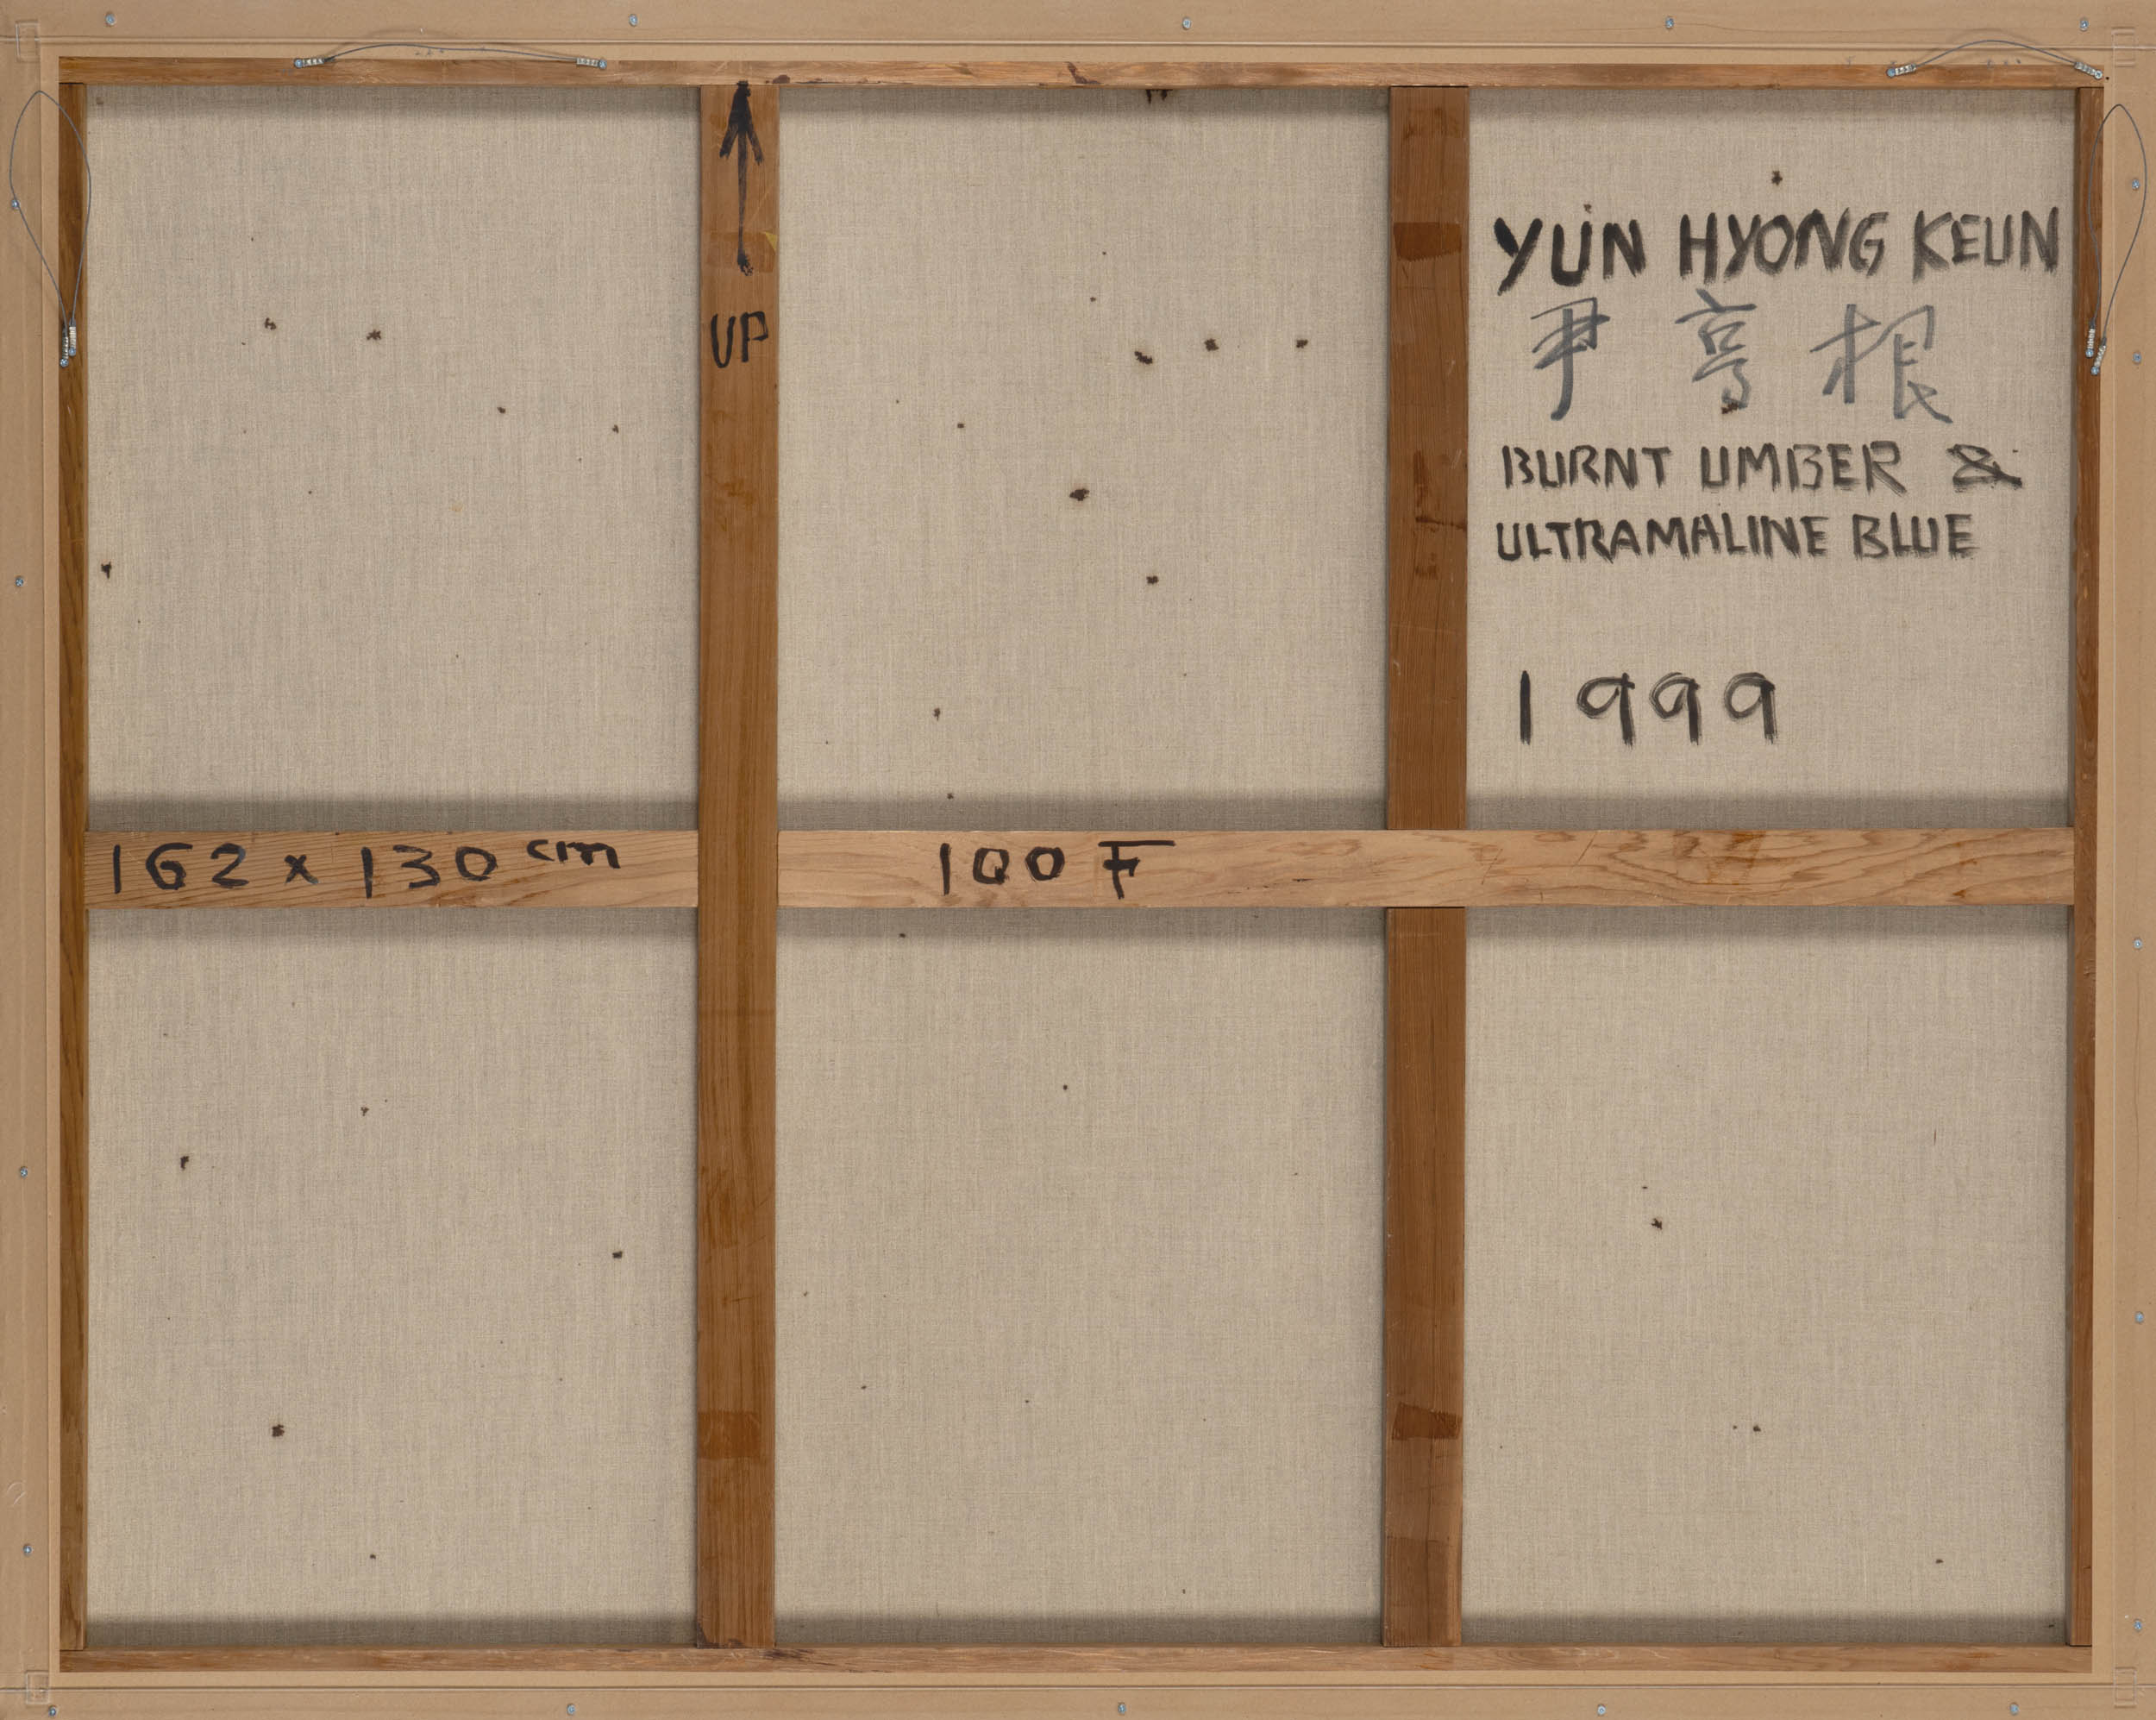 UP
YUN HYONG KEUN
尹亨根
BURNT UMBER &
ULTRAMALINE BLUE
1999
162 x 130 cm
100 F